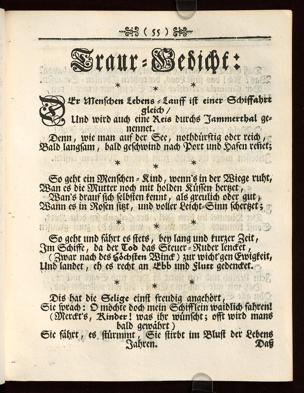 ( 55 )
Traur-Gedicht:
DEr Menschen Lebens-Lauff ist einer Schiffahrt
gleich/
Und wird auch eine Reis durchs Jammerthal ge-
nennet.
Denn, wie man auf der See, nothdürftig oder reich,
Bald langsam, bald geschwind nach Port und Hafen rennet;
So geht ein Menschen-Kind, wenn's in der Wiege ruht,
Wan es die Mutter noch mit holden Küssen herzet,
Wan's drauf sich selbsten kennt, als greulich oder gut,
Wanns es in Rosen sitzt, und voller Leicht-Sinn scherzet;
So geht und fährt es stets, bey lang und kurzer Zeit,
Im Schiffe, da der Tod das Steuer-Ruder lencket,
(Zwar nach des Höchsten Winck) zur wicht'gen Ewigkeit,
Und landet, eh es recht an Ebb und Flutt gedencket.
Dis hat die Selige einst freudig angehört,
Sie sprach: O möchte doch mein Schifflein waidlich fahren!
(Merckt's, Kinder! was ihr wünscht; offt wird mans
bald gewährt)
Sie fährt, es stürmmt, Sie stirbt im Blust der Lebens
Jahren.
Daß